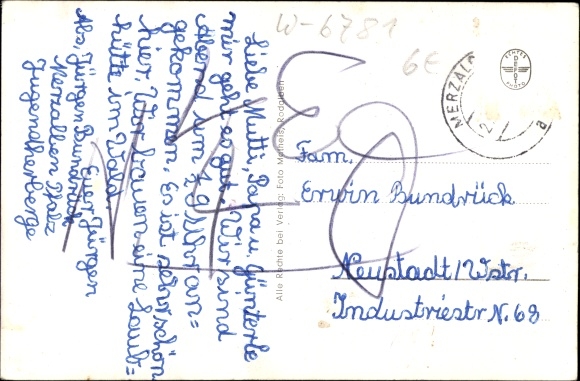 W-6781
6E
MERZAL
2
a
ECHTES
FOTO
Liebe Mutti, Papa u. Günterle
mir geht es gut. Wir sind
Abend um 7 Uhr an=
gekommen. Es ist sehr schön
hier. Wir bauen eine Laub=
hütte im Wald.
Euer Jürgen
Abs. Jürgen Bundrück
Merzalben Pfalz
Jugendherberge
Alle Rechte bei Verlag: Foto Matheis, Rodalben
Fam.
Erwin Bundrück
Neustadt/Wstr.
Industriestr N. 68